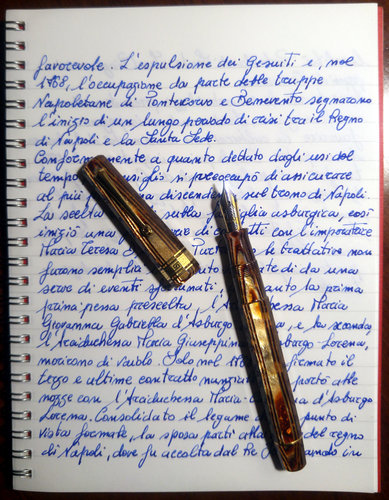 favorevole. L'espulsione dei Gesuiti e, nel
1768, l'occupazione da parte delle truppe
Napoletane di Pontecorvo e Benevento segnarono
l'inizio di un lungo periodo di crisi tra il Regno
di Napoli e la Santa Sede.
Conformemente a quanto dettato dagli usi del
tempo si preoccupò di assicurare
al più discendenza sul trono di Napoli.
La scelta sulla famiglia asburgica, così
iniziò una di contatti con l'imperatrice
Maria Teresa le trattative non
furono semplici da una
serie di eventi la prima
prima pensa prescelta, l'Arciduchessa Maria
Giovanna Gabriella d'Asburgo e la seconda,
l'Arciduchessa Maria Giuseppina Lorena,
morirono di vaiolo. Solo nel firmato il
terzo e ultimo contratto portò alle
nozze con l'Arciduchessa Maria d'Asburgo
Lorena. Consolidato il legame punto di
vista formale, la sposa partì del regno
di Napoli, dove fu accolta dal Re in